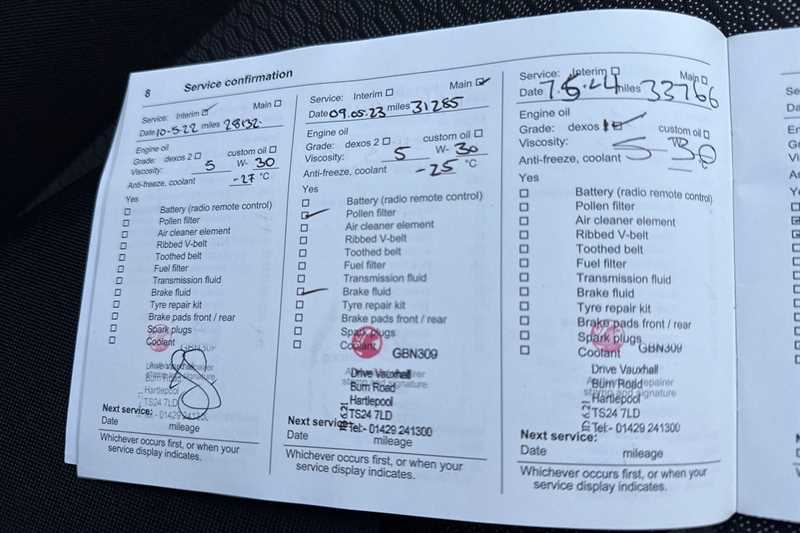 8 Service confirmation
Service: Interim ☑ Main ☐
Date 10-5-22 miles 28132.
Engine oil
Grade: dexos 2 ☐ custom oil ☐
Viscosity: 5 W- 30
Anti-freeze, coolant -27 °C
Yes
☐ Battery (radio remote control)
☐ Pollen filter
☐ Air cleaner element
☐ Ribbed V-belt
☐ Toothed belt
☐ Fuel filter
☐ Transmission fluid
☐ Brake fluid
☐ Tyre repair kit
☐ Brake pads front / rear
☐ Spark plugs
☐ Coolant
GBN309
Burn Road
Hartlepool
TS24 7LD
Next service:
Date mileage
Whichever occurs first, or when your
service display indicates.
Service: Interim ☐ Main ☑
Date 09.05.23 miles 31285
Engine oil
Grade: dexos 2 ☐ custom oil ☐
Viscosity: 5 W- 30
Anti-freeze, coolant -25 °C
Yes
☐ Battery (radio remote control)
☑ Pollen filter
☐ Air cleaner element
☐ Ribbed V-belt
☐ Toothed belt
☐ Fuel filter
☐ Transmission fluid
☑ Brake fluid
☐ Tyre repair kit
☐ Brake pads front / rear
☐ Spark plugs
☐ Coolant
GBN309
Drive Vauxhall
stamp and signature
Burn Road
Hartlepool
TS24 7LD
Tel:- 01429 241300
Next service:
Date mileage
Whichever occurs first, or when your
service display indicates.
Service: Interim ☐ Main ☐
Date 7.5.24 miles 33766
Engine oil
Grade: dexos 1 ☑ custom oil ☐
Viscosity: 5 - 30
Anti-freeze, coolant
Yes
☐ Battery (radio remote control)
☐ Pollen filter
☐ Air cleaner element
☐ Ribbed V-belt
☐ Toothed belt
☐ Fuel filter
☐ Transmission fluid
☐ Brake fluid
☐ Tyre repair kit
☐ Brake pads front / rear
☐ Spark plugs
☐ Coolant
GBN309
Drive Vauxhall
Burn Road
repairer
stamp and signature
Hartlepool
TS24 7LD
Tel:- 01429 241300
Next service:
Date mileage
Whichever occurs first, or when your
service display indicates.